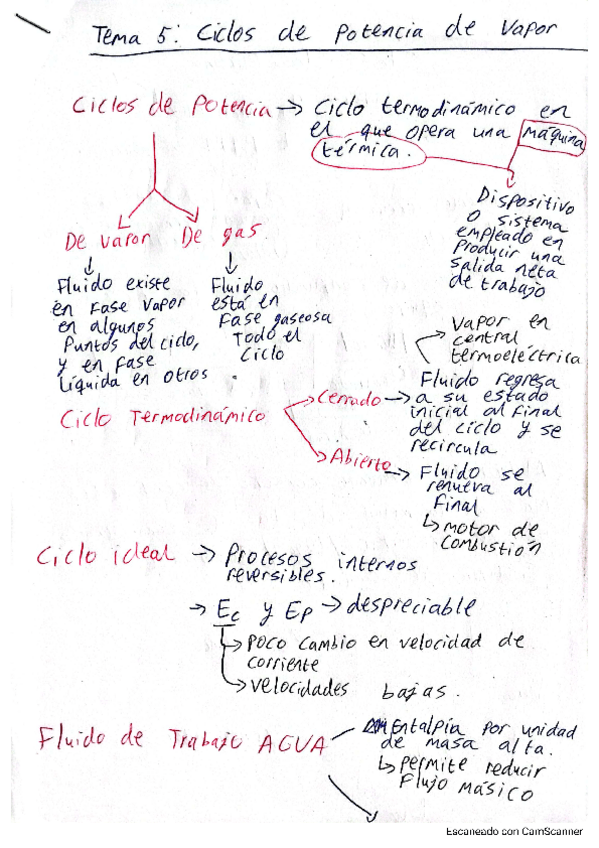 Tema 5: Ciclos de Potencia de Vapor
Ciclos de Potencia → Ciclo termodinámico en
el que opera una máquina
térmica.
Dispositivo
o sistema
empleado en
Producir una
salida neta
de trabajo
De vapor
De gas.
Fluido existe
en Fase vapor
en algunos
Puntos del ciclo,
y en fase
Líquida en otros.
Fluido
está en
Fase gaseosa
Todo el
Ciclo
Ciclo Termodinámico
Cerrado → Fluido regresa
a su estado
inicial al final
del ciclo y se
recircula
Vapor en
central
termoeléctrica
Abierto → Fluido se
renueva al
Final
↳ motor de
Combustión
Ciclo ideal → Procesos internos
reversibles.
→ Ec y Ep → despreciable
→ Poco cambio en velocidad de
corriente
→ velocidades bajas.
Fluido de Trabajo AGUA
entalpía por unidad
de masa alta.
↳ permite reducir
Flujo másico
Escaneado con CamScanner